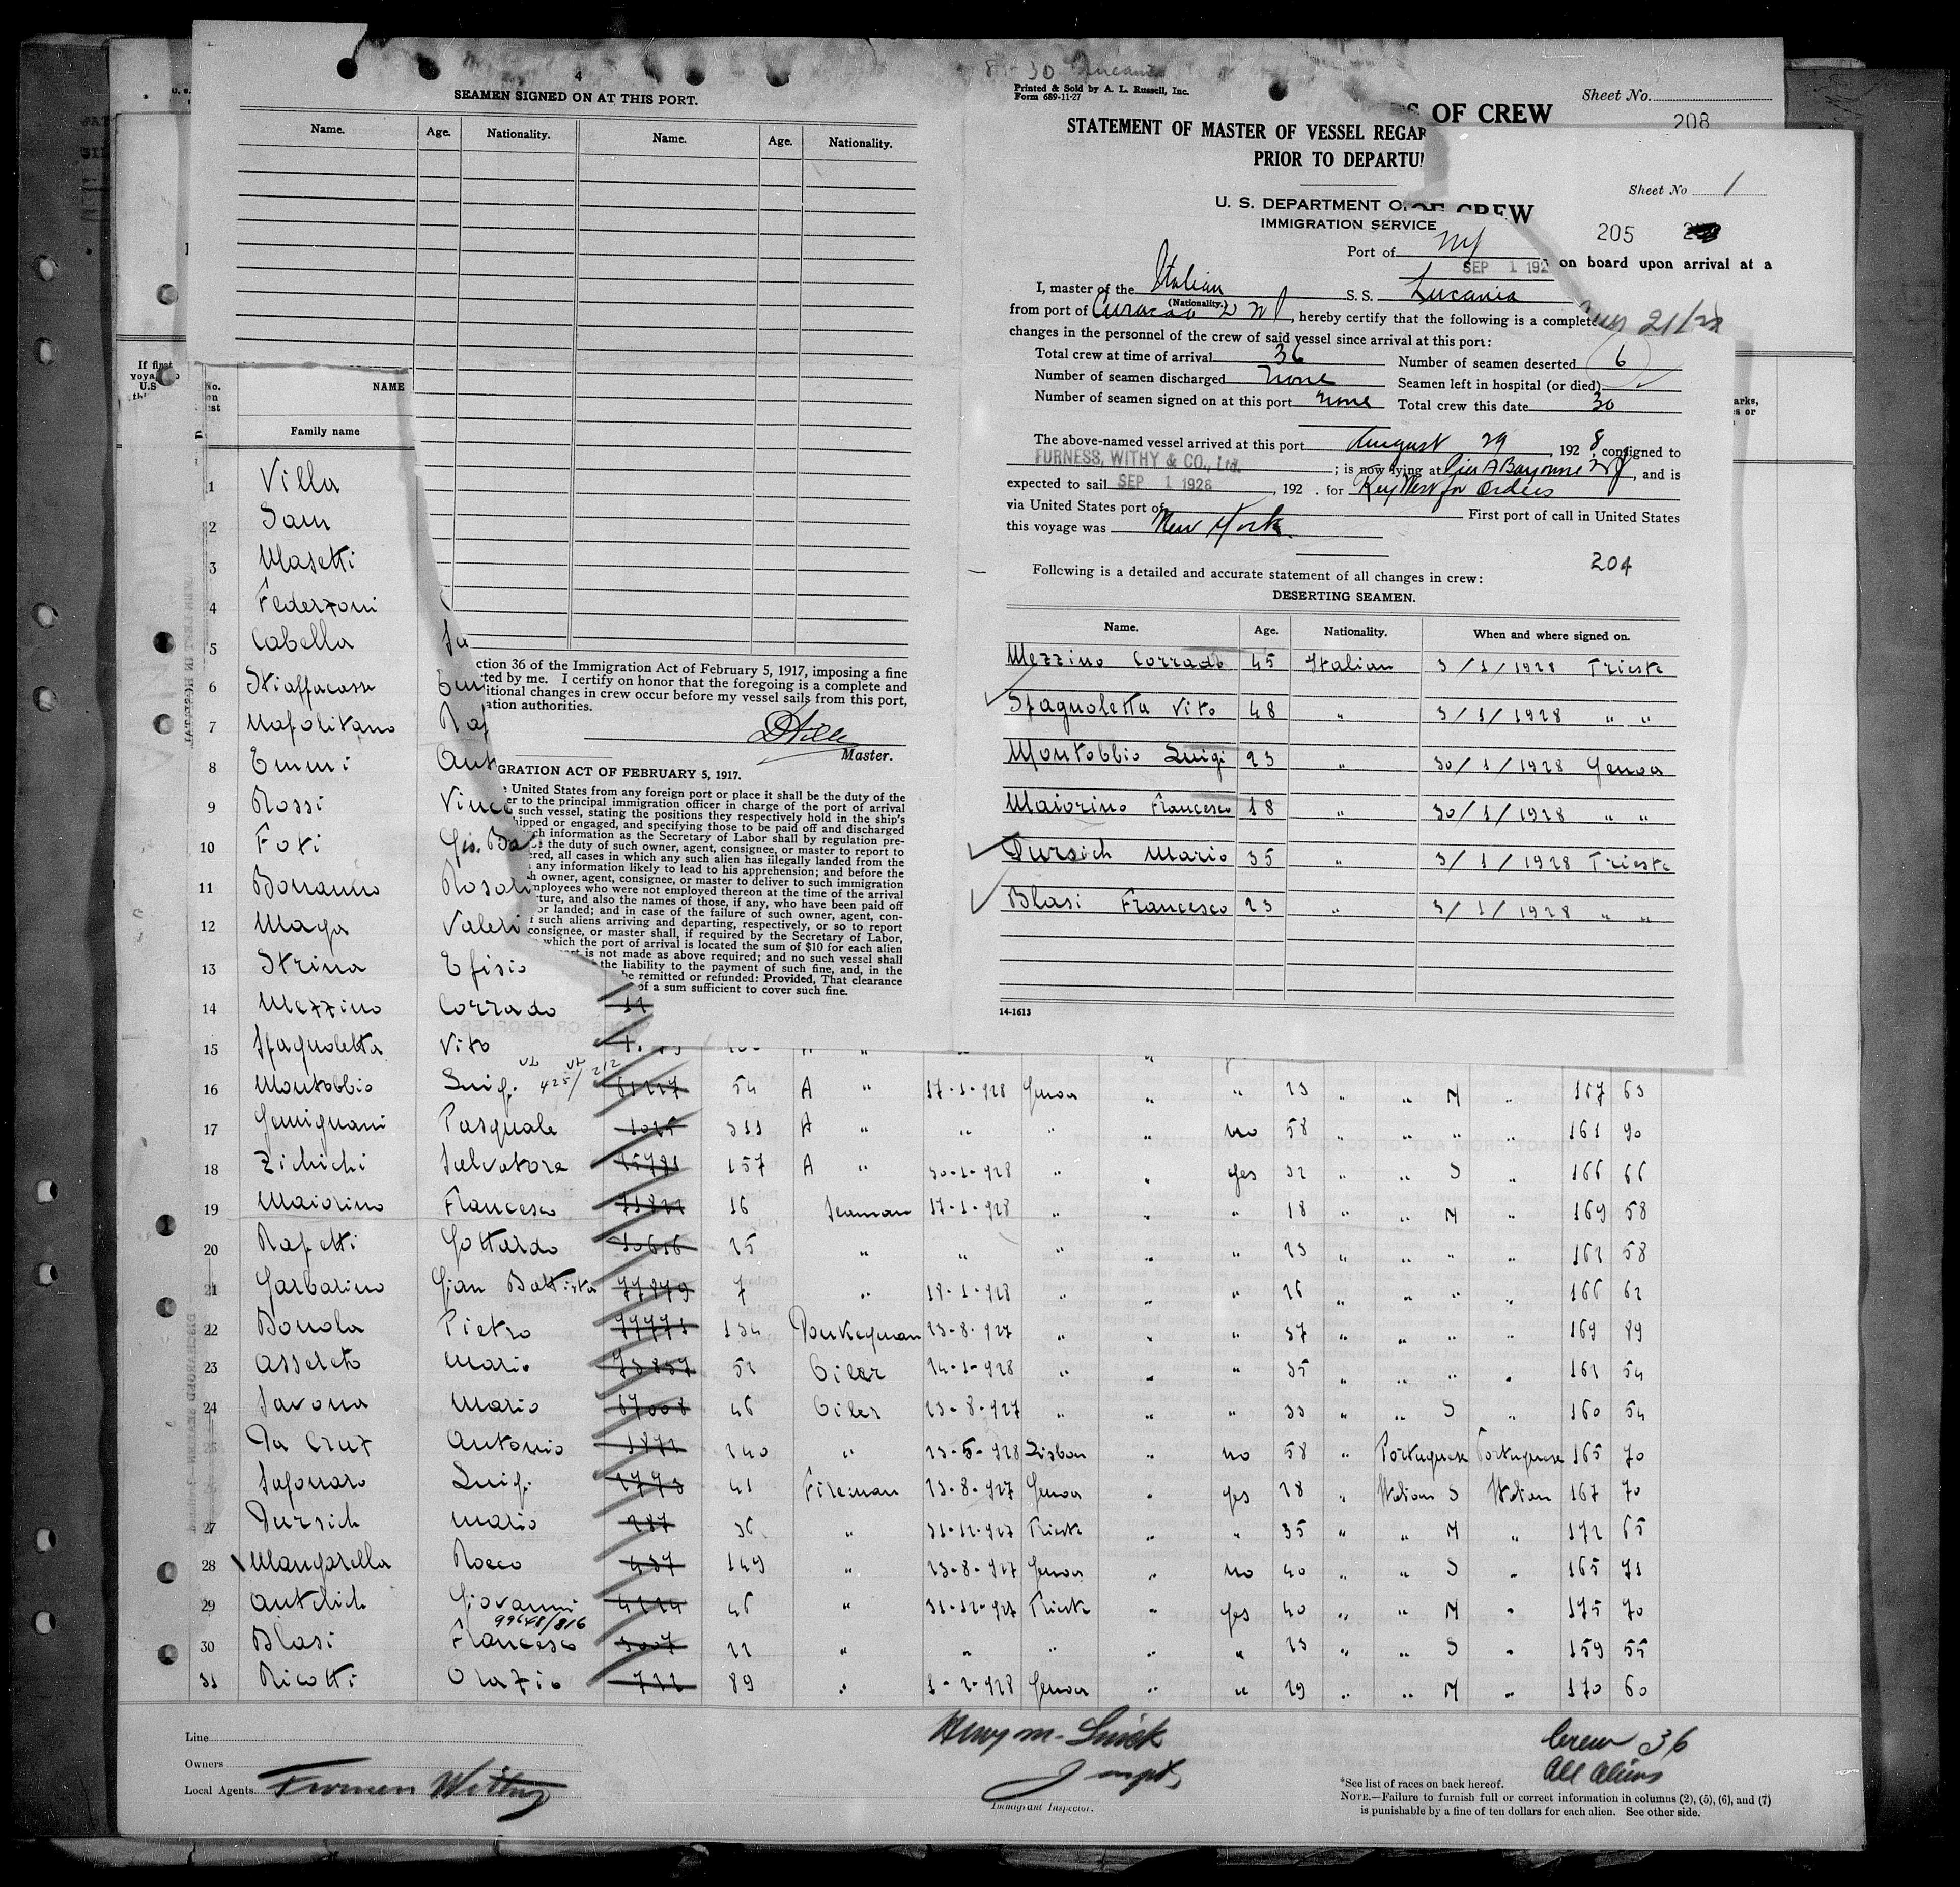 8-30 Lucania
4
SEAMEN SIGNED ON AT THIS PORT.
Name. Age. Nationality. Name. Age. Nationality.
Printed & Sold by A. L. Russell, Inc.
Form 689-11-27
S OF CREW
Sheet No.
208
STATEMENT OF MASTER OF VESSEL REGAR
PRIOR TO DEPARTU
Sheet No 1
U. S. DEPARTMENT O
OF CREW
IMMIGRATION SERVICE
205
Port of NY
SEP 1 192
on board upon arrival at a
I, master of the Italian S. S. Lucania
(Nationality.)
from port of Curacao D W I, hereby certify that the following is a complete
21/28
changes in the personnel of the crew of said vessel since arrival at this port:
Total crew at time of arrival 36 Number of seamen deserted 6
Number of seamen discharged None Seamen left in hospital (or died)
Number of seamen signed on at this port None Total crew this date 30
The above-named vessel arrived at this port August 29, 1928, consigned to
FURNESS, WITHY & CO., Ltd. ; is now lying at Pier A Bayonne NJ, and is
expected to sail SEP 1 1928, 192 . for Key West for Orders
via United States port of First port of call in United States
this voyage was New York.
204
Following is a detailed and accurate statement of all changes in crew:
DESERTING SEAMEN.
Name. Age. Nationality. When and where signed on.
Mezzino Corrado 45 Italian 3/1/1928 Trieste
Spagnoletta Vito 48 " 3/1/1928 " "
Montobbio Luigi 23 " 30/1/1928 Genoa
Maiorino Francesco 18 " 30/1/1928 " "
Dursich Mario 35 " 3/1/1928 Trieste
Blasi Francesco 23 " 3/1/1928 " "
14-1613
ction 36 of the Immigration Act of February 5, 1917, imposing a fine
ted by me. I certify on honor that the foregoing is a complete and
itional changes in crew occur before my vessel sails from this port,
ation authorities.
Master.
GRATION ACT OF FEBRUARY 5, 1917.
United States from any foreign port or place it shall be the duty of the
er to the principal immigration officer in charge of the port of arrival
such vessel, stating the positions they respectively hold in the ship's
hipped or engaged, and specifying those to be paid off and discharged
ch information as the Secretary of Labor shall by regulation pre-
the duty of such owner, agent, consignee, or master to report to
ered, all cases in which any such alien has illegally landed from the
any information likely to lead to his apprehension; and before the
h owner, agent, consignee, or master to deliver to such immigration
mployees who were not employed thereon at the time of the arrival
rture, and also the names of those, if any, who have been paid off
or landed; and in case of the failure of such owner, agent, con-
f such aliens arriving and departing, respectively, or so to report
consignee, or master shall, if required by the Secretary of Labor,
which the port of arrival is located the sum of $10 for each alien
rt is not made as above required; and no such vessel shall
the liability to the payment of such fine, and, in the
be remitted or refunded: Provided, That clearance
of a sum sufficient to cover such fine.
If first
voya
U.S
No. on list
NAME
Family name
1 Villa
2 Sam
3 Masetti
4 Federzoni
5 Cabella
6 Schiaffacasse
7 Napolitano Raf
8 Emmi Ant
9 Rossi Vince
10 Foti Gio. Ba
11 Bonanno Rosol
12 Maga Valeri
13 Strina Efisio
14 Mezzino Corrado
15 Spagnoletta Vito
16 Montobbio Luigi 425/212 61227 54 A " 17-1-928 Genoa " " 23 " " M " 167 63
17 Gemignani Pasquale 1025 311 A " " " " no 58 " " " " 161 90
18 Zichichi Salvatore 25781 157 A " 30-1-928 " " yes 32 " " S " 166 66
19 Maiorino Francesco 71822 16 Seaman 17-1-928 " " " 18 " " M " 169 58
20 Rapetti Gottardo 10616 25 " " " " " 23 " " " " 162 58
21 Garbarino Gian Battista 77879 7 " 18-1-928 " " " 26 " " " " 166 62
22 Bonola Pietro 77771 134 Donkeyman 23-8-927 " " " 37 " " " " 169 89
23 Assereto Mario 73857 52 Oiler 24-1-928 " " " 35 " " " " 162 54
24 Savona Mario 67008 46 Oiler 23-8-927 " " " 33 " " S " 160 54
25 Da Cruz Antonio 1872 240 " 23-5-928 Lisbon " no 58 " Portuguese Portuguese 165 70
Saponaro Luigi 2773 41 Fireman 23-8-927 Genoa " yes 28 " Italian S Italian 167 70
27 Dursich Mario 287 36 " 31-12-927 Trieste " " 35 " " M " 172 65
28 Mangarella Rocco 437 149 " 23-8-927 Genoa " no 40 " " S " 165 71
29 Antchich Giovanni 4224 46 " 31-12-927 Trieste " yes 40 " " M " 175 70
99648/816
30 Blasi Francesco 3007 22 " " " " " 23 " " S " 159 55
31 Ricotti Orazio 722 89 " 1-2-928 Genoa " " 29 " " M " 170 60
Line
Owners
Local Agents Furness Withy
Immigrant Inspector.
Crew 36
All Aliens
*See list of races on back hereof.
NOTE.—Failure to furnish full or correct information in columns (2), (5), (6), and (7)
is punishable by a fine of ten dollars for each alien. See other side.